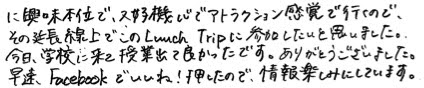 に興味本位で、好機心でアトラクション感覚で行くので、
その延長線上でこのLunch Tripに参加したいと思いました。
今日、学校に来て授業出て良かったです。ありがとうございました。
早速、Facebookでいいね！押したので、情報楽しみにしています。